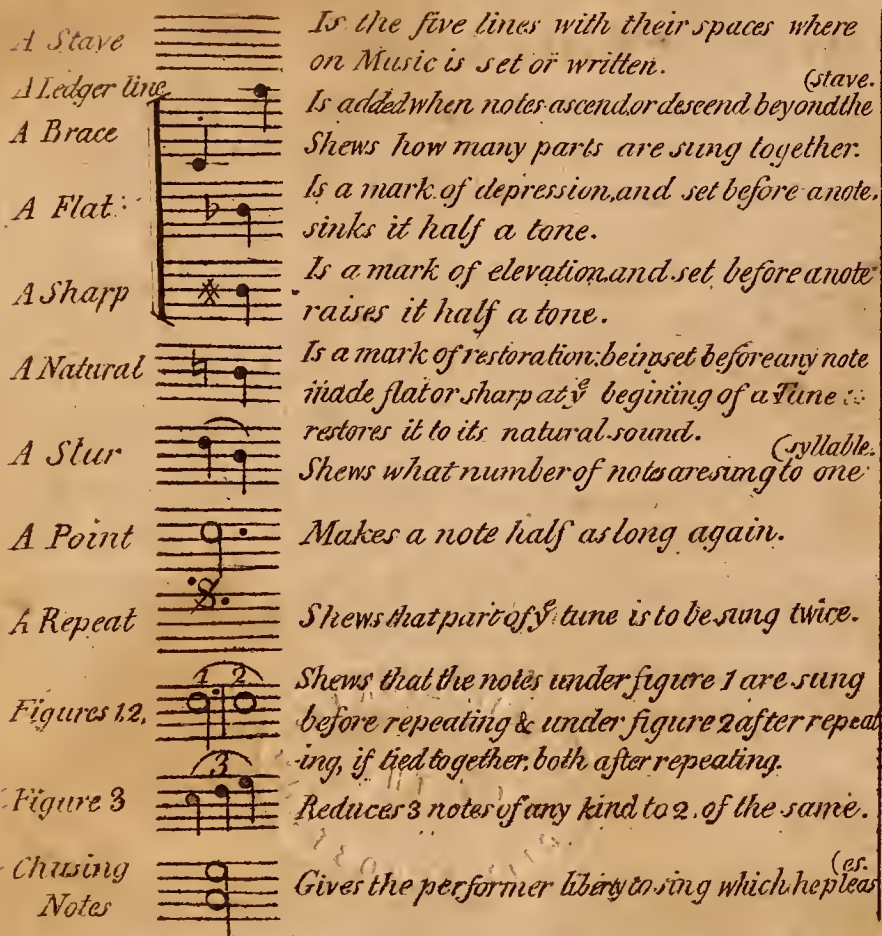 A Stave Is the five lines with their spaces where
on Music is set or written.
A Ledger line (stave.
Is added when notes ascend.or descend beyond the
A Brace Shews how many parts are sung together.
A Flat Is a mark of depression,and set before a note.
sinks it half a tone.
A Sharp Is a mark of elevation,and set before a note
raises it half a tone.
A Natural Is a mark of restoration:being set before any note
made flat or sharp at yᵉ begining of a Tune
restores it to its natural sound.
A Slur (syllable.
Shews what number of notes are sung to one
A Point Makes a note half as long again.
A Repeat Shews that part of yᵉ tune is to be sung twice.
1 2
Figures 1.2, Shews that the notes under figure 1 are sung
before repeating & under figure 2 after repeat
ing, if tied together, both after repeating.
3
Figure 3 Reduces 3 notes of any kind to 2. of the same.
Chusing (es.
Notes Gives the performer liberty to sing which he pleas